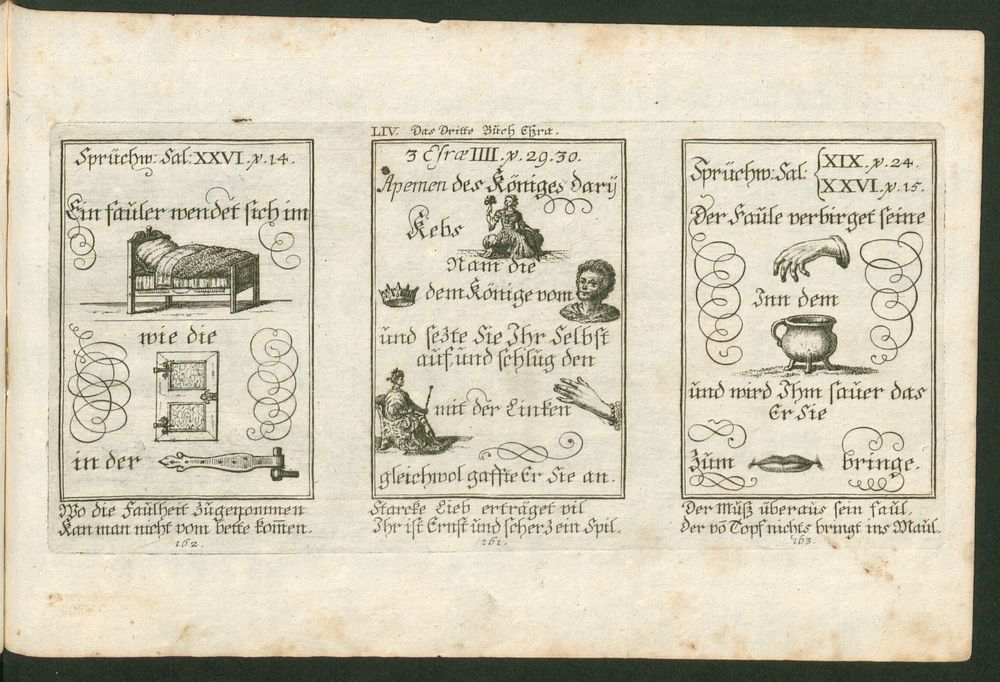 LIV. Das Dritte Buch Eßræ.
Sprüchw: Sal: XXVI. ℣. 14.
Ein fauler wendet sich im
wie die
in der
Wo die Faulheit Zugenommen
Kan man nicht vom bette kom̅en.
162.
3 Esræ IIII. ℣. 29. 30.
Apemen des Königes Darÿ
Kebs
Nam die
dem Könige vom
und sezte Sie Ihr Selbst
auf, und schlug den
mit der Linken
gleichwol gaffte Er Sie an.
Starcke Lieb erträget vil
Ihr ist Ernst und scherz ein Spil.
161.
Sprüchw: Sal: XIX. ℣. 24.
XXVI. ℣. 15.
Der Faule verbirget seine
Inn dem
und wird Ihm sauer das
Er Sie
Zum bringe.
Der Muß überaus sein faul,
der vō Topf nichts bringt ins Maul.
163.